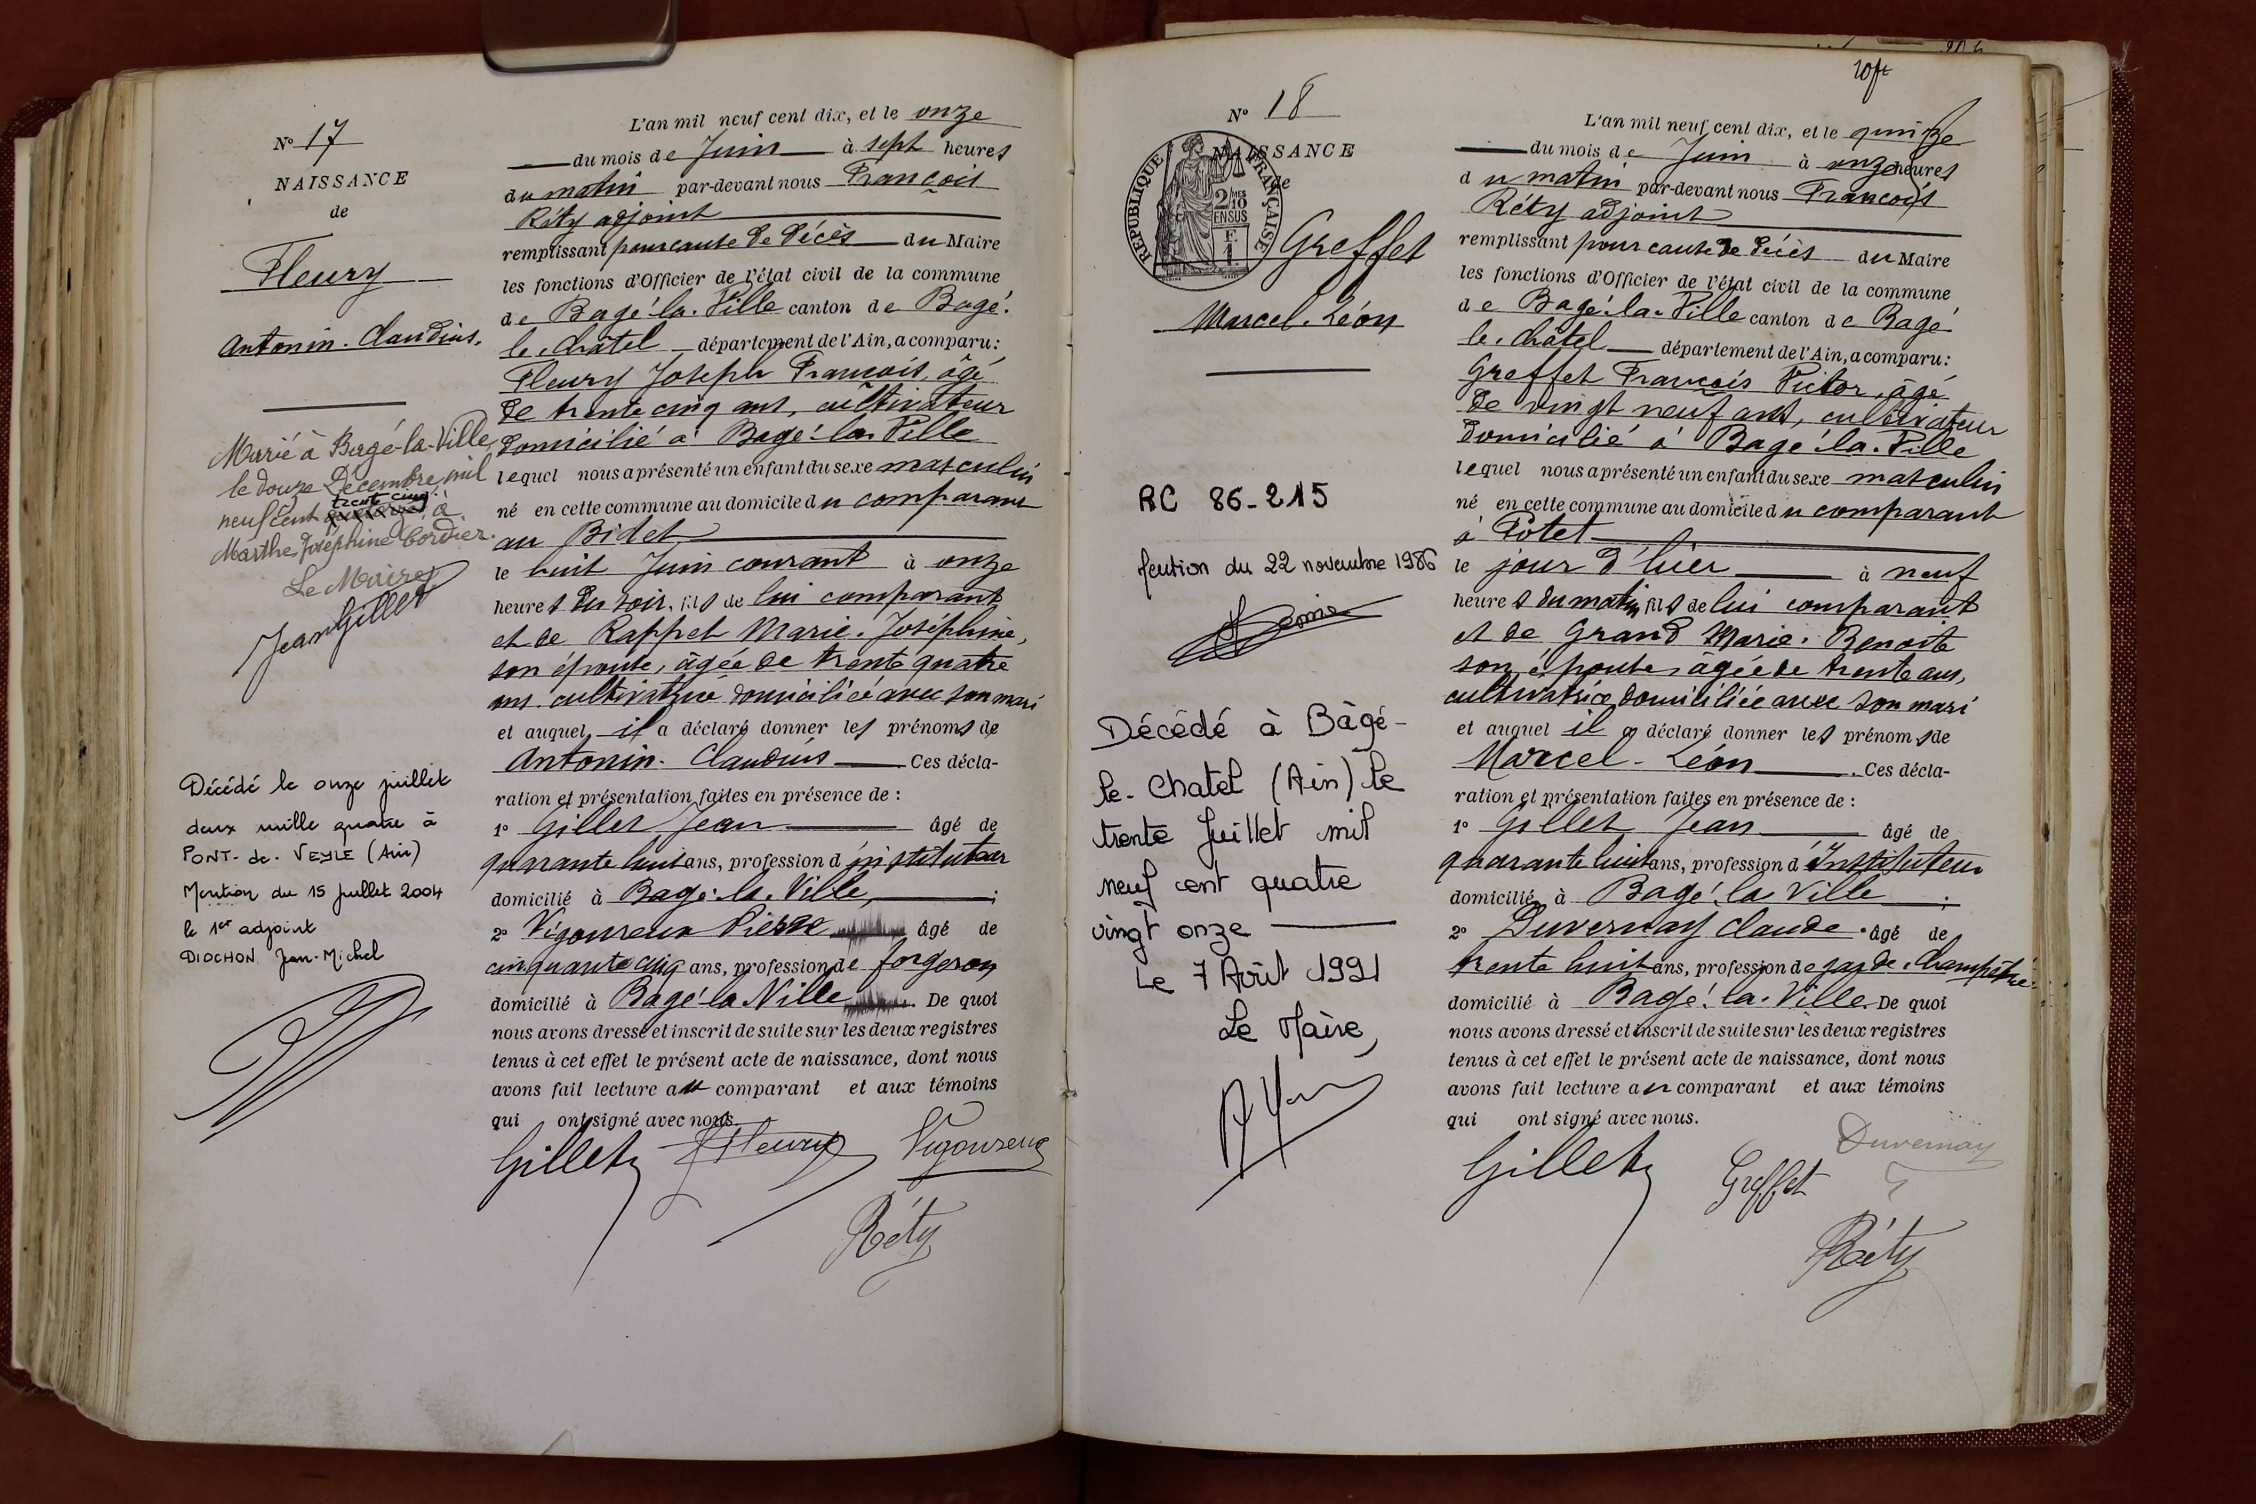 N° 17
NAISSANCE
de
Fleury
Antonin-Claudius.
Marié à Bagé-la-Ville
le douze Décembre mil
trente cinq
neuf cent à
Marthe Joséphine Cordier.
Le Maire
Jean Gillet
Décédé le onze juillet
deux mille quatre à
PONT-de-VEYLE (Ain)
Mention du 15 juillet 2004
le 1er adjoint
DIOCHON Jean-Michel
L'an mil neuf cent dix, et le onze
du mois de Juin à sept heures
du matin par-devant nous François
Réty adjoint
remplissant pour cause de décès du Maire
les fonctions d'Officier de l'état civil de la commune
de Bagé-la-Ville canton de Bagé-
le-châtel département de l'Ain, a comparu:
Fleury Joseph François, âgé
de trente cinq ans, cultivateur
domicilié à Bagé-la-Ville
lequel nous a présenté un enfant du sexe masculin
né en cette commune au domicile du comparant
au Bidet
le huit Juin courant à onze
heures du soir, fils de lui comparant
et de Rappet Marie-Joséphine,
son épouse, âgée de trente quatre
ans cultivatrice domiciliée avec son mari
et auquel il a déclaré donner les prénoms de
Antonin-Claudius Ces décla-
ration et présentation faites en présence de :
1° Gillet Jean âgé de
quarante huit ans, profession d'instituteur
domicilié à Bagé-la-Ville ;
2° Vigoureux Pierre âgé de
cinquante cinq ans, profession de forgeron
domicilié à Bagé-la-Ville. De quoi
nous avons dressé et inscrit de suite sur les deux registres
tenus à cet effet le présent acte de naissance, dont nous
avons fait lecture au comparant et aux témoins
qui ont signé avec nous.
Gillet J Fleury Vigoureux
Réty
10 fr
N° 18
NAISSANCE
de
RÉPUBLIQUE FRANÇAISE
2/10
EN SUS
F.
1.
Greffet
Marcel-Léon
RC 86-215
Mention du 22 novembre 1986
Décédé à Bâgé-
le-Chatel (Ain) le
trente Juillet mil
neuf cent quatre
vingt onze
Le 7 Août 1991
Le Maire,
L'an mil neuf cent dix, et le quinze
du mois de Juin à onze heures
du matin par-devant nous François
Réty adjoint
remplissant pour cause de décès du Maire
les fonctions d'Officier de l'état civil de la commune
de Bagé-la-Ville canton de Bagé-
le-châtel département de l'Ain, a comparu:
Greffet François Victor, âgé
de vingt neuf ans, cultivateur
domicilié à Bagé-la-Ville
lequel nous a présenté un enfant du sexe masculin
né en cette commune au domicile du comparant
à Potet
le jour d'hier à neuf
heures du matin, fils de lui comparant
et de Grand Marie-Benoite
son épouse, âgée de trente ans,
cultivatrice domiciliée avec son mari
et auquel il a déclaré donner les prénoms de
Marcel-Léon. Ces décla-
ration et présentation faites en présence de :
1° Gillet Jean âgé de
quarante huit ans, profession d'Instituteur
domicilié à Bagé-la-Ville ;
2° Duvernay Claude âgé de
trente huit ans, profession de garde-champêtre
domicilié à Bagé-la-Ville. De quoi
nous avons dressé et inscrit de suite sur les deux registres
tenus à cet effet le présent acte de naissance, dont nous
avons fait lecture au comparant et aux témoins
qui ont signé avec nous.
Gillet Greffet Duvernay
Réty